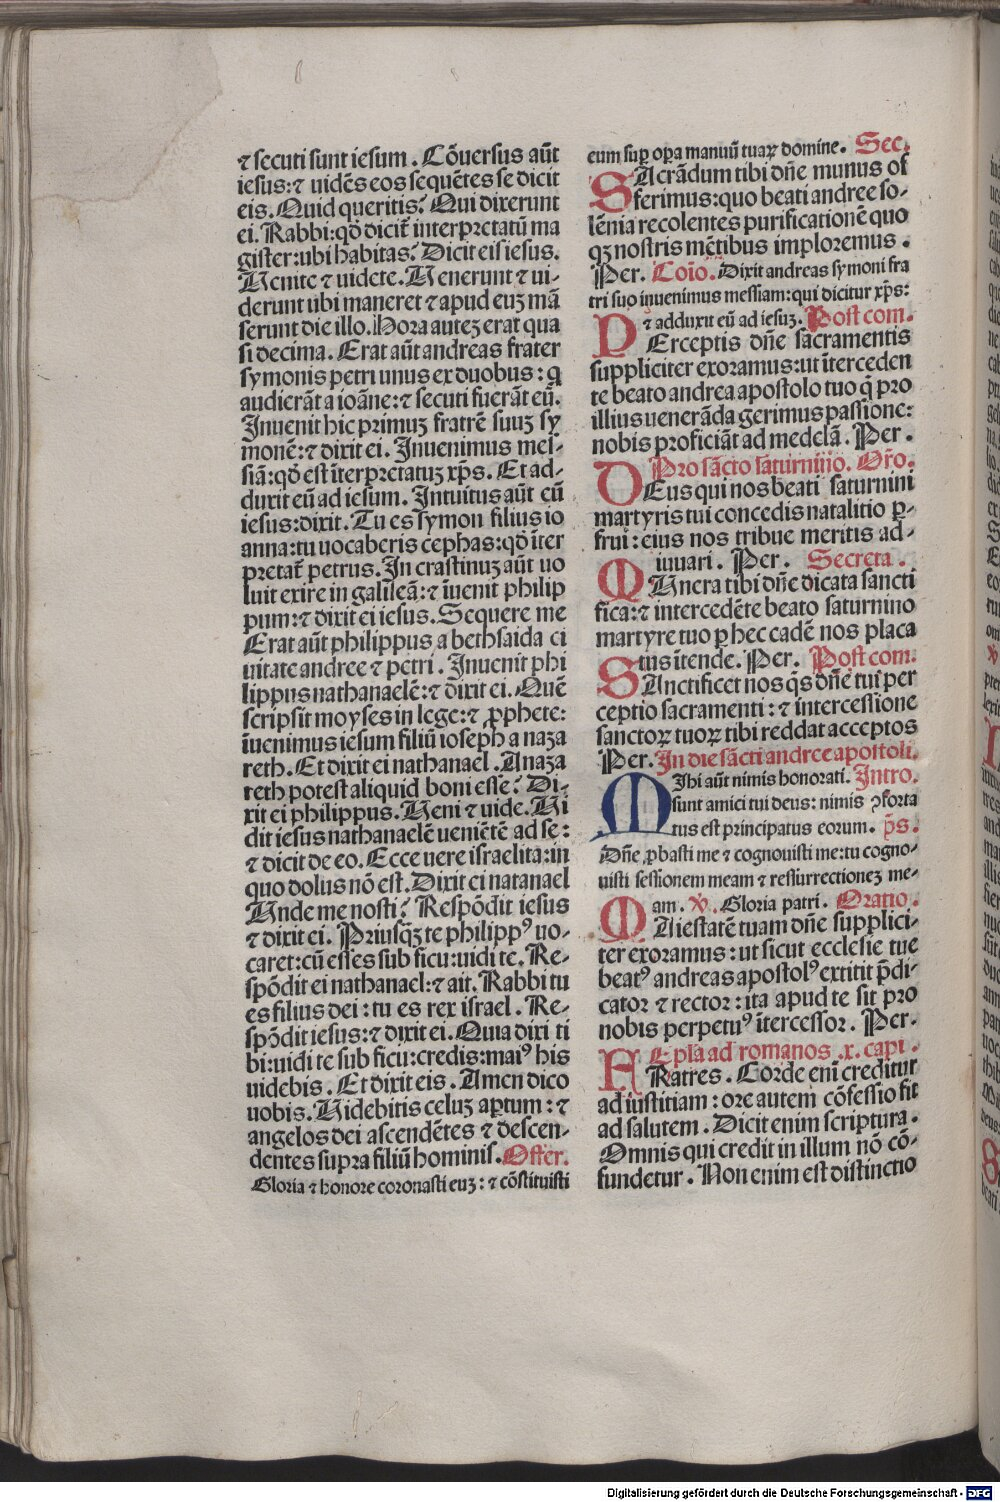 ⁊ secuti sunt iesum. Cõuersus aũt
iesus:⁊ uidẽs eos sequẽtes se dicit
eis. Quid queritis? Qui dixerunt
ei. Rabbi:qđ dicit̃ interpretatũ ma
gister:ubi habitas? Dicit eis iesus.
Uenite ⁊ uidete. Uenerunt ⁊ ui-
derunt ubi maneret ⁊ apud euꝫ mã
serunt die illo. Hora auteꝫ erat qua
si decima. Erat aũt andreas frater
symonis petri unus ex duobus: q
audierãt a ioãne:⁊ secuti fuerãt eũ.
Inuenit hic primuꝫ fratrẽ suuꝫ sy
monẽ:⁊ dixit ei. Inuenimus mes-
siã:qđ est ĩterpretatuꝫ xp̃s. Et ad-
duxit eũ ad iesum. Intuitus aũt eũ
iesus:dixit. Tu es symon filius io
anna:tu uocaberis cephas:qđ ĩter
pretat̃ petrus. In crastinuꝫ aũt uo
luit exire in galileã:⁊ ĩuenit philip
pum:⁊ dixit ei iesus. Sequere me
Erat aũt philippus a bethsaida ci
uitate andree ⁊ petri. Inuenit phi
lippus nathanaelẽ:⁊ dixit ei. Quẽ
scripsit moyses in lege:⁊ ꝓphete:
ĩuenimus iesum filiũ ioseph a naza
reth. Et dixit ei nathanael. A naza
reth potest aliquid boni esse? Di-
xit ei philippus. Ueni ⁊ uide. Ui
dit iesus nathanaelẽ ueniẽtẽ ad se:
⁊ dicit de eo. Ecce uere israelita:in
quo dolus nõ est. Dixit ei natanael
Unde me nosti? Respõdit iesus
⁊ dixit ei. Priusq̃ꝫ te philippꝰ uo-
caret:cũ esses sub ficu:uidi te. Re-
spõdit ei nathanael:⁊ ait. Rabbi tu
es filius dei: tu es rex israel. Re-
spõdit iesus:⁊ dixit ei. Quia dixi ti
bi:uidi te sub ficu:credis:maiꝰ his
uidebis. Et dixit eis. Amen dico
uobis. Uidebitis celuꝫ aꝑtum:⁊
angelos dei ascendẽtes ⁊ descen-
dentes supra filiũ hominis. Offer.
Gloria ⁊ honore coronasti euꝫ: ⁊ cõstituisti
eum suꝑ oꝑa manuũ tuaꝝ domine. Sec.
SAcrãdum tibi dñe munus of
ferimus:quo beati andree so-
lẽnia recolentes purificationẽ quo
qꝫ nostris mẽtibus imploremus.
Per. Coĩo. Dixit andreas symoni fra
tri suo inuenimus messiam:qui dicitur xp̃s:
⁊ adduxit eũ ad iesuꝫ. Post com.
PErceptis dñe sacramentis
suppliciter exoramus:ut ĩterceden
te beato andrea apostolo tuo q̃ pro
illius uenerãda gerimus passione:
nobis proficiãt ad medelã. Per.
Pro sãcto saturnino. Or̃o.
DEus qui nos beati saturnini
martyris tui concedis natalitio ꝑ-
frui: eius nos tribue meritis ad-
iuuari. Per. Secreta.
MUnera tibi dñe dicata sancti
fica:⁊ intercedẽte beato saturnino
martyre tuo ꝑ hec eadẽ nos placa
tus ĩtende. Per. Post com.
SAnctificet nos q̃s dñe tui per
ceptio sacramenti: ⁊ intercessione
sanctoꝝ tuoꝝ tibi reddat acceptos
Per. In die sãcti andree apostoli.
MIhi aũt nimis honorati. Intro.
sunt amici tui deus: nimis ↄforta
tus est principatus eorum. p̃s.
Dñe ꝓbasti me ⁊ cognouisti me:tu cogno-
uisti sessionem meam ⁊ ressurrectioneꝫ me-
am. ℣. Gloria patri. Oratio.
MAiestatẽ tuam dñe supplici-
ter exoramus: ut sicut ecclesie tue
beatꝰ andreas apostolꝰ extitit p̃di-
cator ⁊ rector: ita apud te sit pro
nobis perpetuꝰ ĩtercessor. Per.
Epl̃a ad romanos .x. capi.
FRatres. Corde enĩ creditur
ad iustitiam: ore autem cõfessio fit
ad salutem. Dicit enim scriptura.
Omnis qui credit in illum nõ cõ-
fundetur. Non enim est distinctio
Digitalisierung gefördert durch die Deutsche Forschungsgemeinschaft - DFG